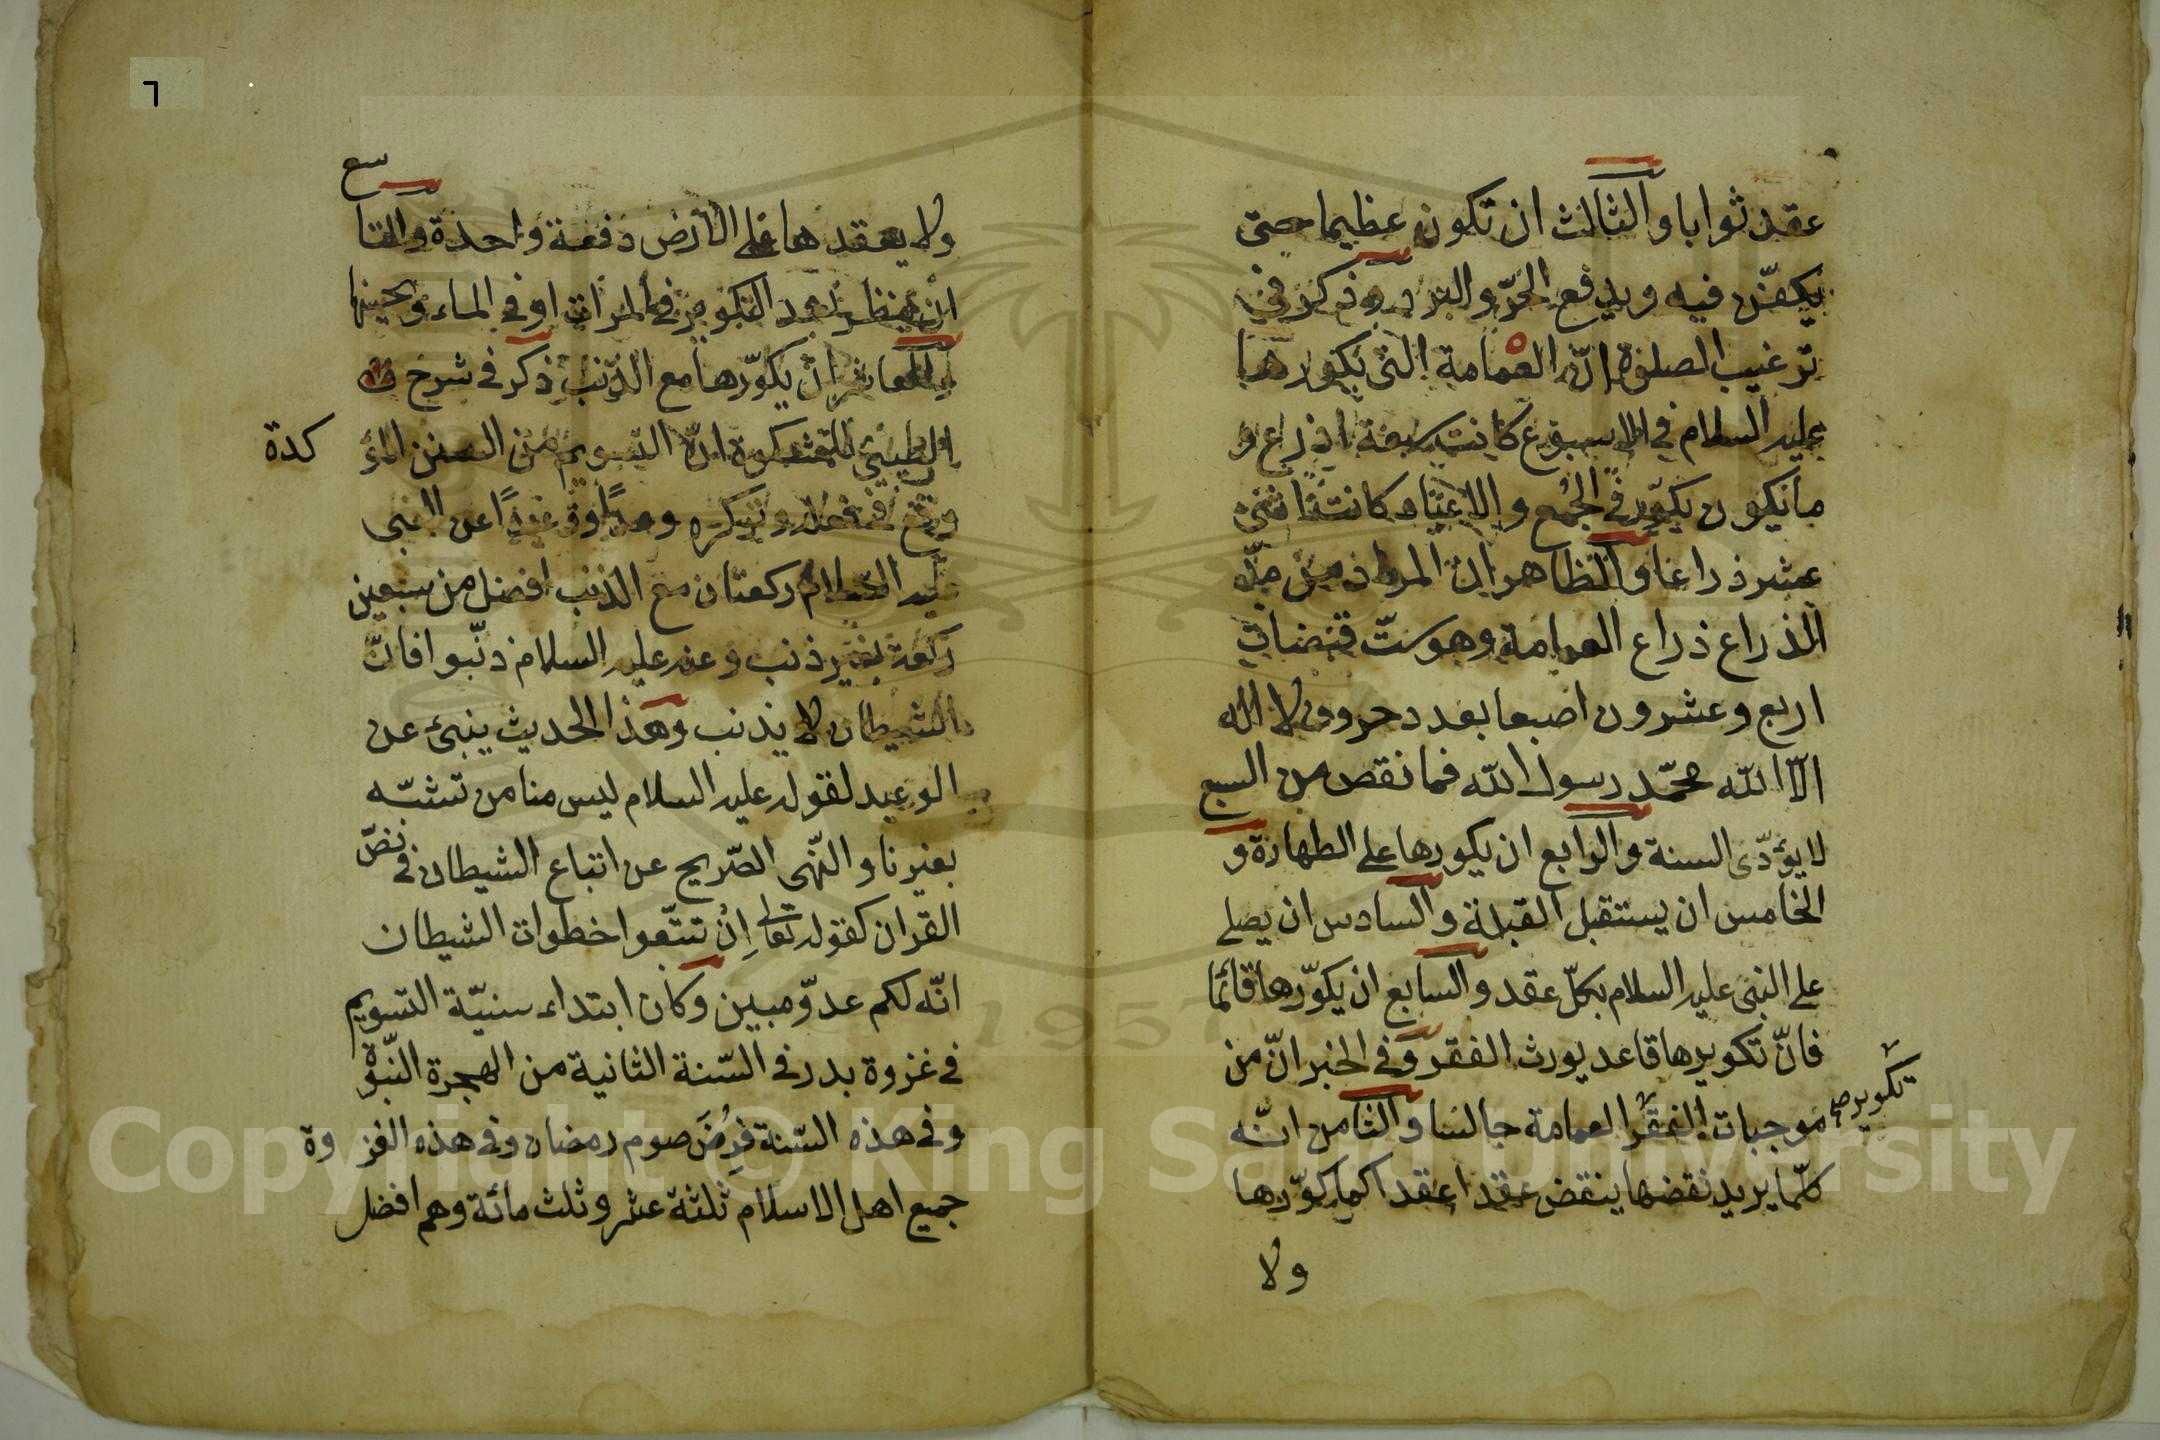 عقد ثوابا والثالث ان تكون عظيما حتى
يكفن فيه ويدفع الحرّ والبرد وذكر في
ترغيب الصلوة انّ العمامة التى يكورها
عليه السلام في الاسبوع كانت سبعة اذراع و
ما يكون يكوّر في الجُمع والاعياد كانت اثنى
عشر ذراعا والظاهر ان المراد من
الذراع ذراع العامة وهو ستّ قبضات
اربع وعشرون اصبعا بعدد حروف لا اله
الّا الله محمّد رسول الله فما نقص من السبع
لا يؤدّى السنة والرابع ان يكورها على الطهارة و
الخامس ان يستقبل القبلة والسادس ان يصلى
على النبى عليه السلام بكلّ عقد والسابع ان يكوّرها قائما
فانّ تكويرها قاعد يورث الفقر وفي الخبر انّ من
موجبات الفقر العمامة جالسا والثامن انّه
تكوير صح
كلّما يريد نقضها ينقض عقدا عقدا كما كوّرها
ولا
٦
ولا يعقدها على الارض دفعة واحدة والتا
سع
ان ينظر بعد التكوير في المرات او في الماء ونحوها
والعاشر ان يكوّرها مع الذنب ذكر في شرح
الطيبى للمشكوة انّ التسويم من السنن المؤ
كدة
عن النبى
عليه السلام ركعتان مع الذنب افضل من سبعين
ركعة بغير ذنب وعنه عليه السلام ذنّبوا فانّ
الشيطان لا يذنب وهذا الحديث ينبئ عن
الوعيد لقوله عليه السلام ليس منا من تشبّه
بغيرنا والنّهى الصّريح عن اتباع الشيطان في نصّ
القران كقوله تعالى اِنْ تتّبعوا خطوات الشيطان
انّه لكم عدوّ مبين وكان ابتداء سنيّة التسويم
في غزوة بدر في السّنة الثانية من الهجرة النّبوّة
وفي هذه السّنة فرِضَ صوم رمضان وفي هذه الغزوة
جميع اهل الاسلام ثلثة عشر وثلث مائة وهم افضل
1957
Copyright © King Saud University